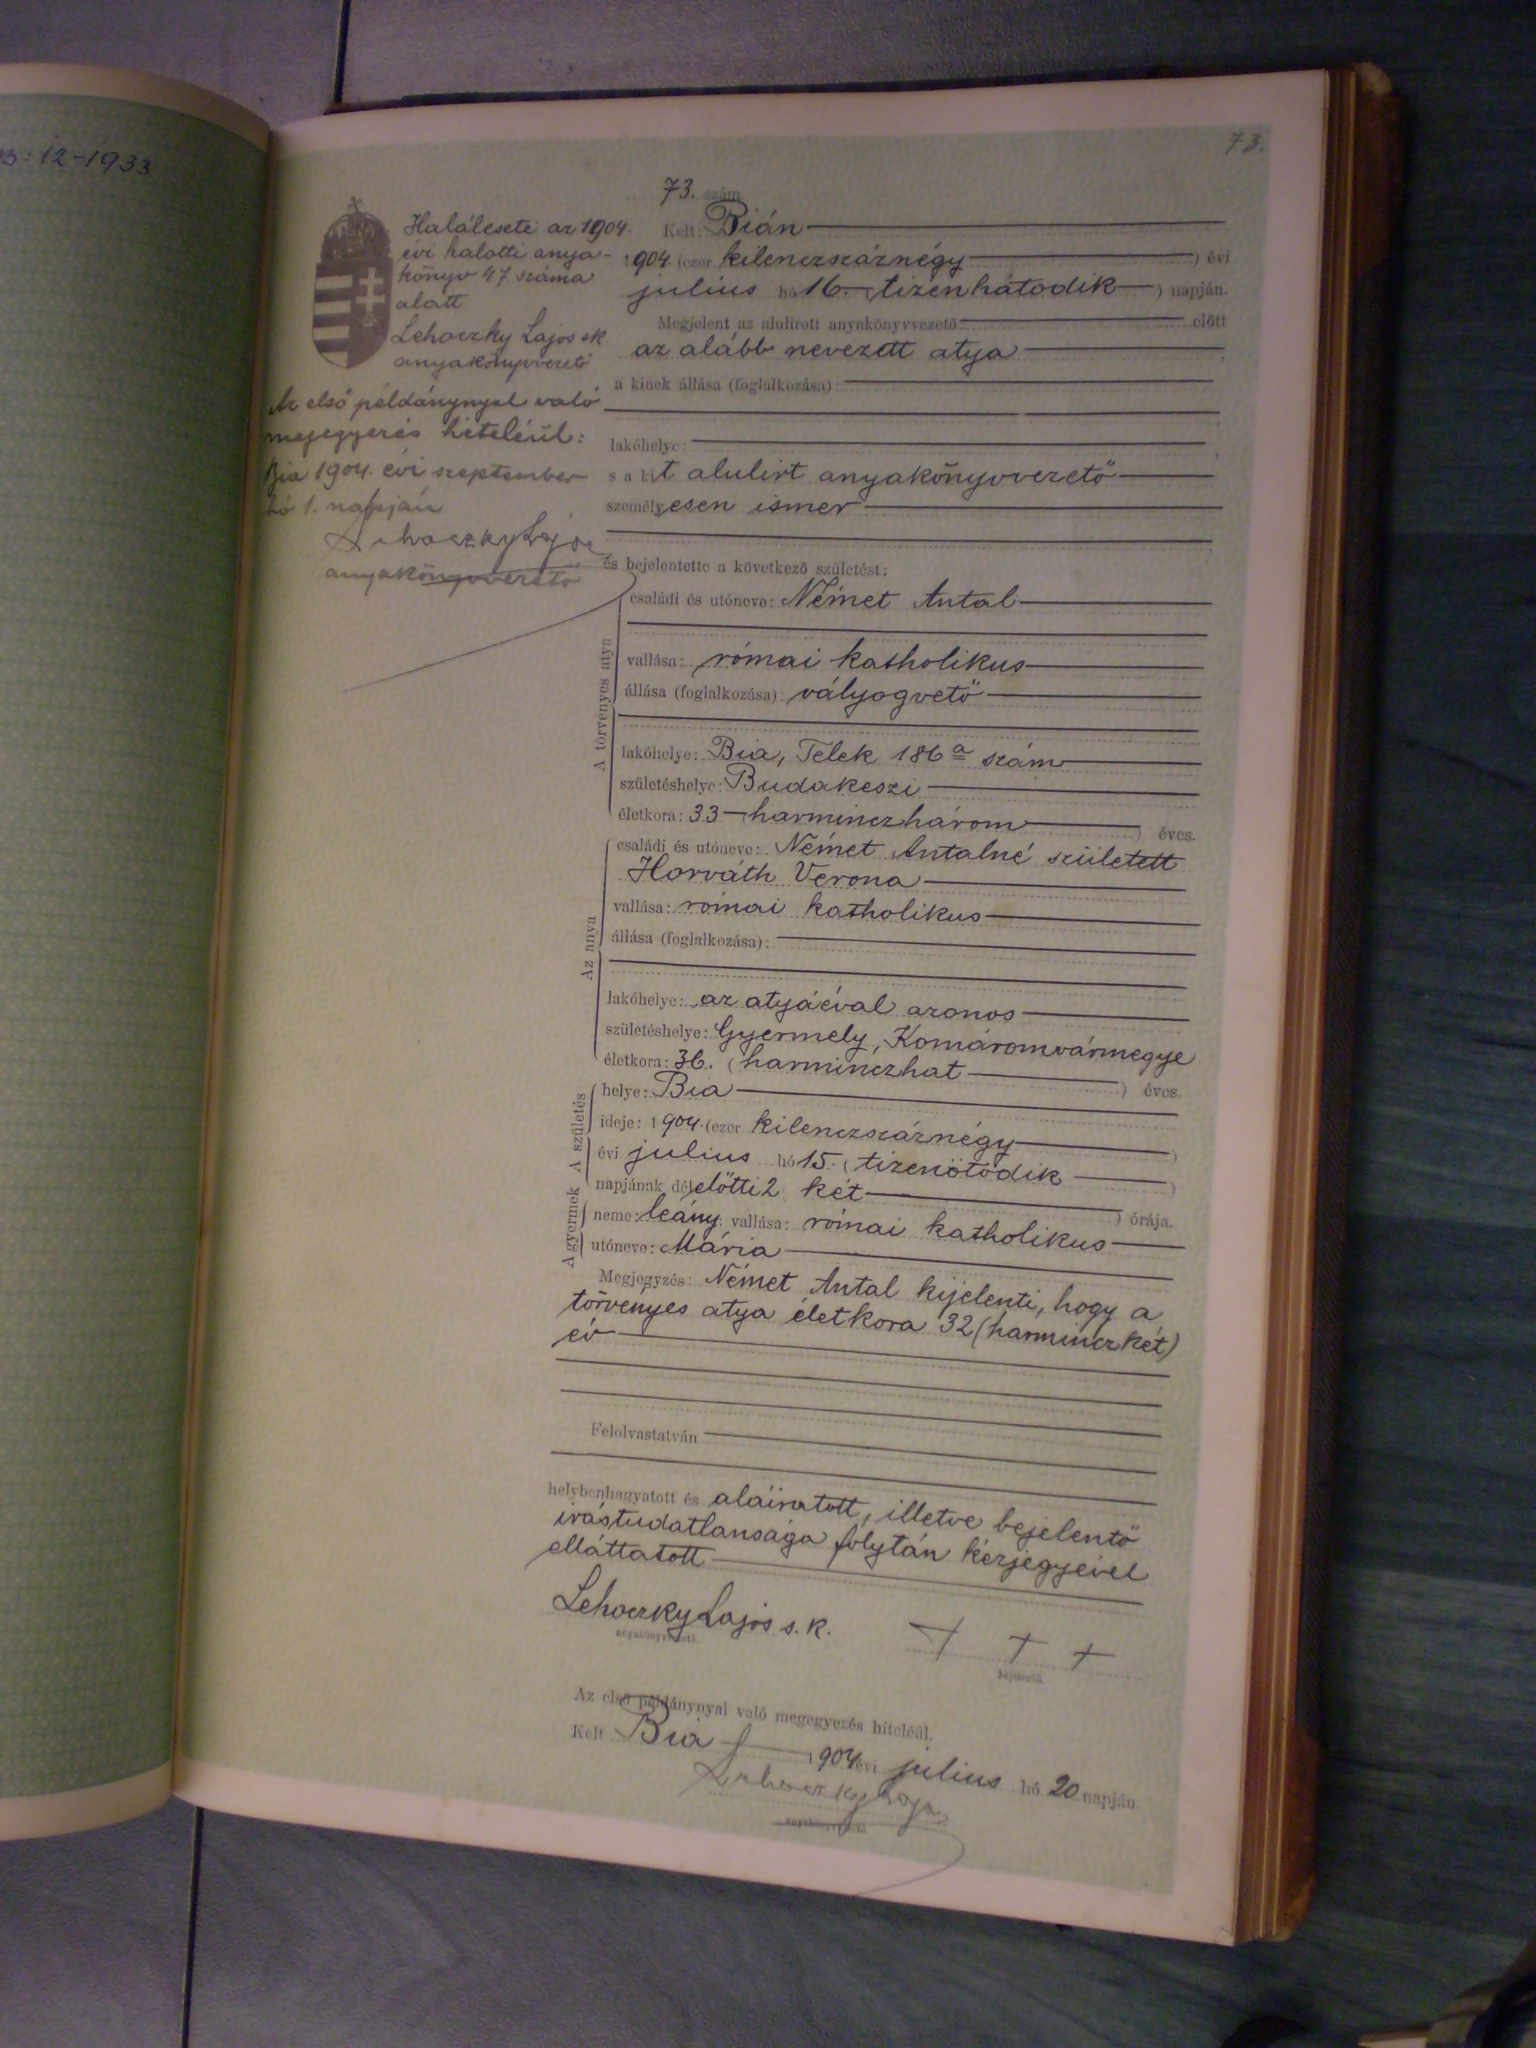 73.
13:12-1933
73. szám
Halálesete az 1904.
évi halotti anya-
könyv 47 száma
alatt
Lehoczky Lajos sk
anyakönyvvezető
Az első példánynyal való
megegyezés hiteléül:
Bia 1904. évi szeptember
hó 1. napján
Lehoczky Lajos
anyakönyvvezető
Kelt: Bián
1904 (ezer kilenczszáznégy ) évi
julius hó 16. (tizenhatodik ) napján.
Megjelent az alulirott anyakönyvvezető előtt
az alább nevezett atya
a kinek állása (foglalkozása):
lakóhelye:
s a kit alulirt anyakönyvvezető
személyesen ismer
és bejelentette a következő születést:
A törvényes atya
családi és utóneve: Német Antal
vallása: római katholikus
állása (foglalkozása): vályogvető
lakóhelye: Bia, Telek 186a szám
születéshelye: Budakeszi
életkora: 33 (harminczhárom ) éves.
Az anya
családi és utóneve: Német Antalné született
Horváth Verona
vallása: római katholikus
állása (foglalkozása):
lakóhelye: az atyáéval azonos
születéshelye: Gyermely, Komáromvármegye
életkora: 36. (harminczhat ) éves.
A születés
helye: Bia
ideje: 1904. (ezer kilenczszáznégy )
évi julius hó 15. (tizenötödik )
napjának délelőtti 2 két ) órája.
A gyermek
neme: leány; vallása: római katholikus
utóneve: Mária
Megjegyzés: Német Antal kijelenti, hogy a
törvényes atya életkora 32 (harminczkét)
év
Felolvastatván
helybenhagyatott és aláiratott, illetve bejelentő
irástudatlansága folytán kézjegyével
elláttatott
Lehoczky Lajos s. k.
anyakönyvvezető.
+ + +
bejelentő.
Az első példánynyal való megegyezés hiteléül.
Kelt Bia 1904 évi julius hó 20 napján.
Lehoczky Lajos
anyakönyvvezető